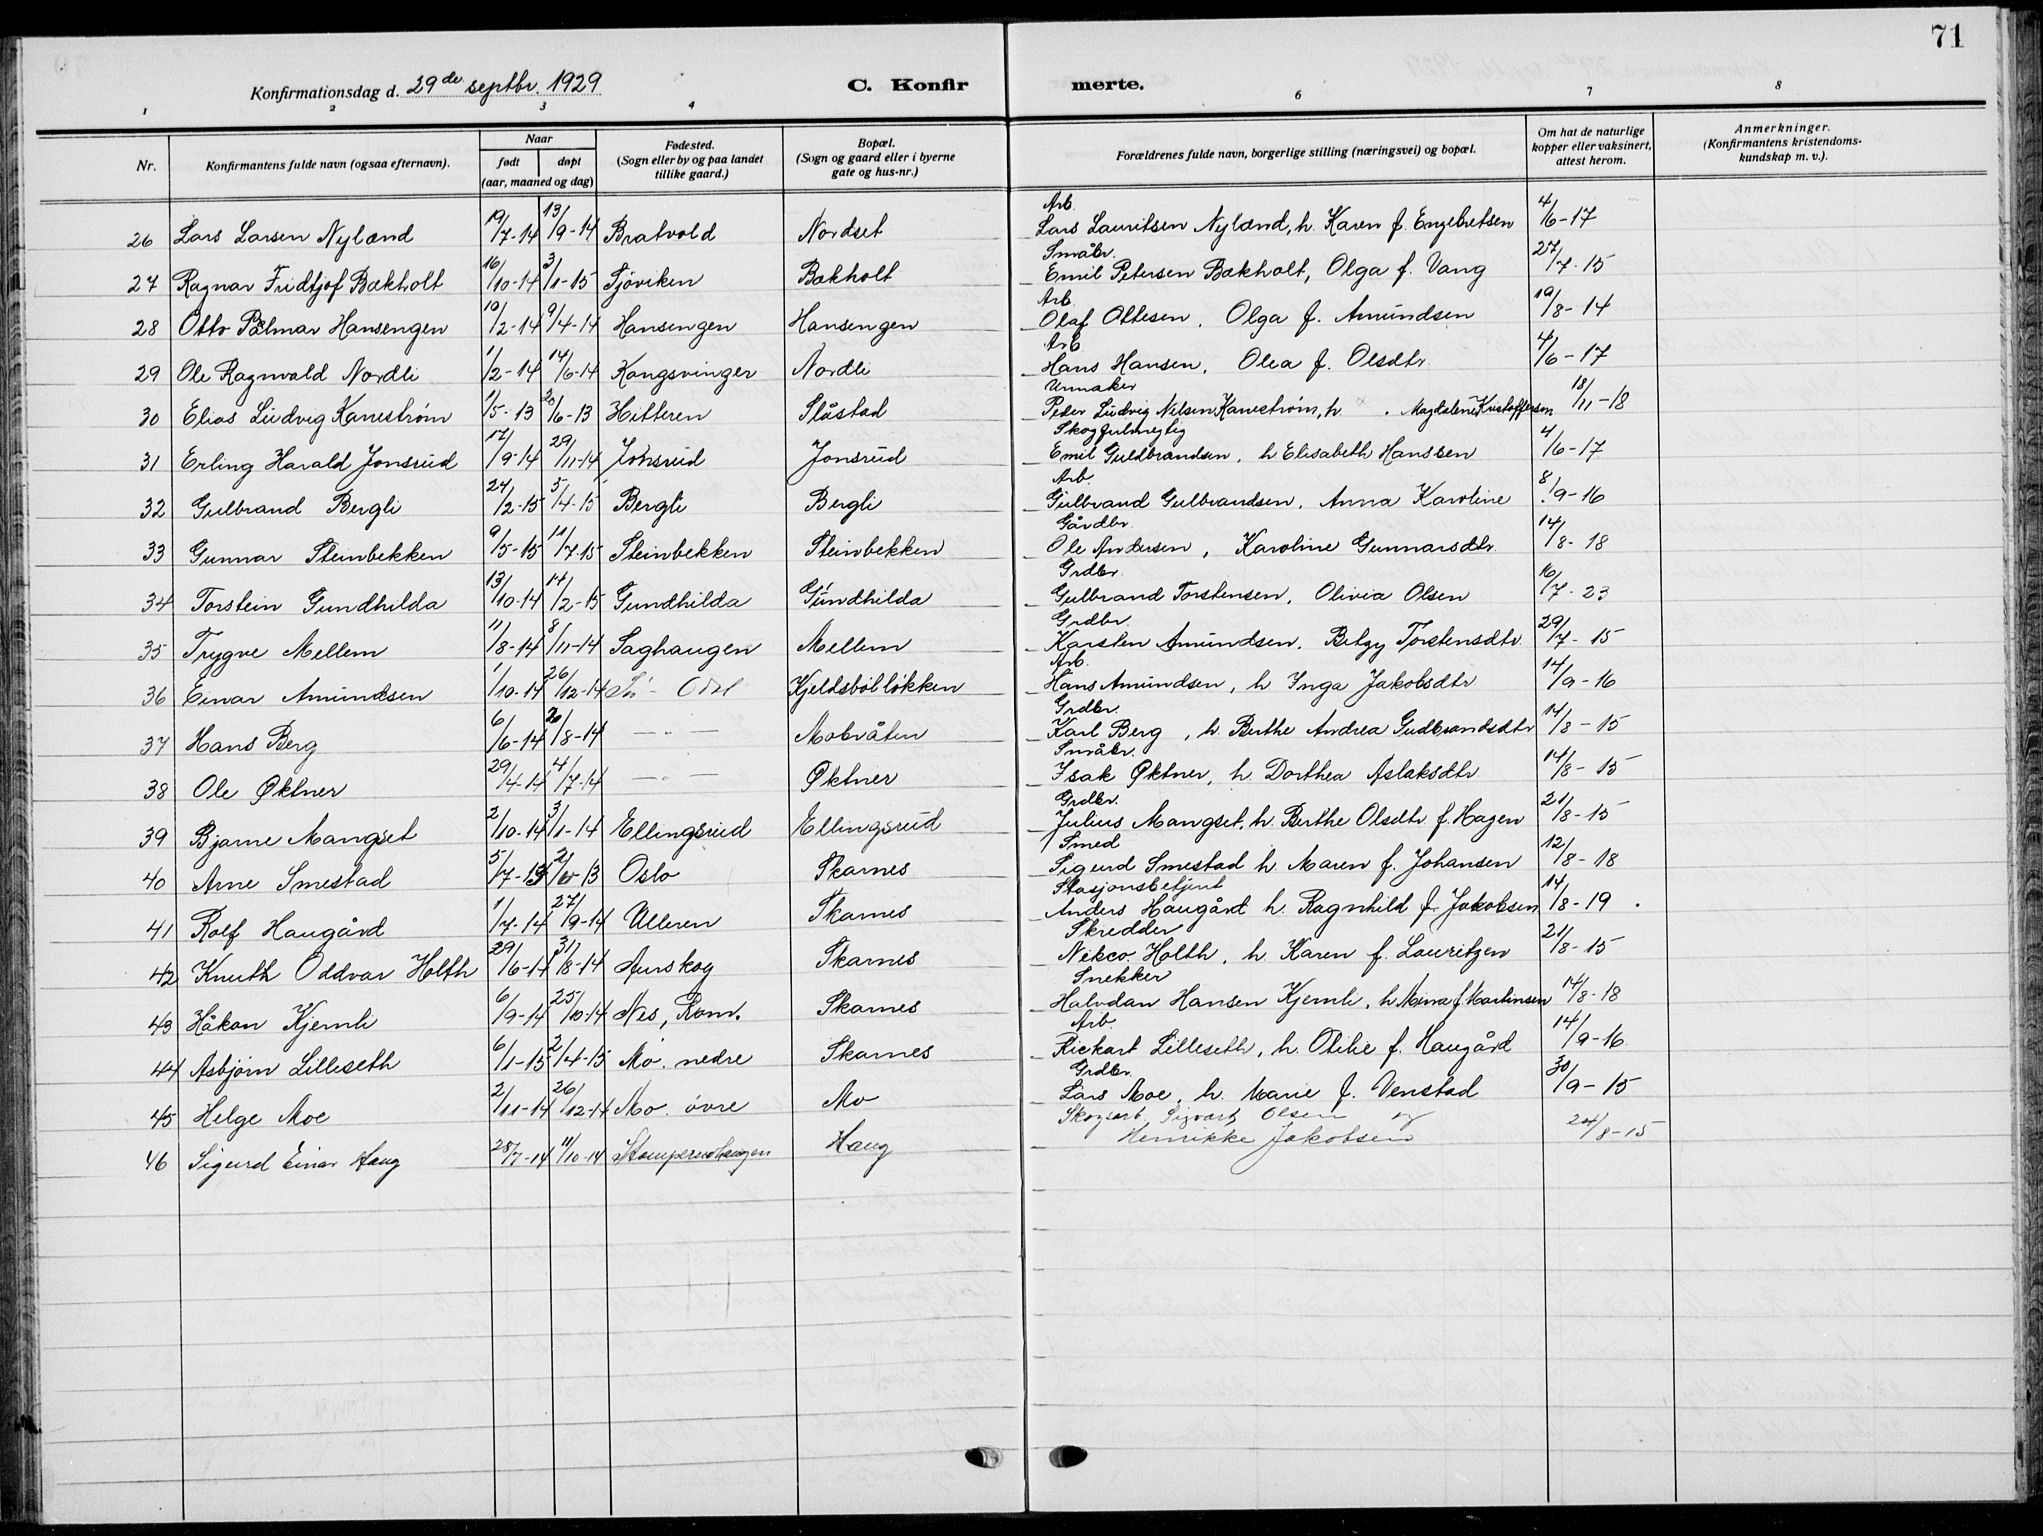 71
Konfirmationsdag d. 29de septbr. 1929 C. Konfirmerte.
1 2 3 4 6 7 8
Nr. Konfirmantens fulde navn (ogsaa efternavn). Naar født døpt (aar, maaned og dag) Fødested. (Sogn eller by og paa landet tillike gaard.) Bopæl. (Sogn og gaard eller i byerne gate og hus-nr.) Forældrenes fulde navn, borgerlige stilling (næringsvei) og bopæl. Om hat de naturlige kopper eller vaksinert, attest herom. Anmerkninger. (Konfirmantens kristendomskundskap m. v.).
Arb.
26 Lars Larsen Nyland 19/7-14 13/9-14 Bratvold Nordset Lars Lauritsen Nyland, h. Karen f. Engebretsen 4/6-17
Småbr.
27 Ragnar Fridtjof Bækholt 16/10-14 3/1-15 Sjøviken Bækholt Emil Petersen Bækholt, Olga f. Vang 27/7-15
Arb.
28 Otto Palmar Hansengen 19/2-14 9/4-14 Hansengen Hansengen Olaf Ottesen, Olga f. Amundsen 19/8-14
Arb
29 Ole Ragnvald Nordli 1/2-14 14/6-14 Kongsvinger Nordli Hans Hansen, Olea f. Olsdtr 4/6-17
Urmaker
30 Elias Ludvig Kanestrøm 1/5-13 20/6-13 Hitteren Slåstad Peder Ludvig Nilsen Kanestrøm, h. Magdalene Kristoffersen 18/11-18
Skogfulmegtig
31 Erling Harald Jonsrud 17/9-14 29/11-14 Jonsrud Jonsrud Emil Guldbrandsen, h Elisabeth Hanssen 4/6-17
Arb.
32 Gulbrand Bergli 24/2-15 5/4-15 Bergli Bergli Gulbrand Gulbrandsen, Anna Karoline 8/9-16
Gårdbr.
33 Gunnar Steinbekken 9/5-15 11/7-15 Steinbekken Steinbekken Ole Andersen, Karoline Gunnarsdtr 14/8-18
Grdbr.
34 Torstein Gundhilda 13/10-14 14/2-15 Gundhilda Gundhilda Gulbrand Torstensen, Olivia Olsen 16/7-23
Grdbr.
35 Trygve Mellem 11/8-14 8/11-14 Saghaugen Mellem Karsten Amundsen, Betzy Torstensdtr 29/7-15
Arb.
36 Einar Amundsen 1/10-14 26/12-14 S. Odal Kjeldsbølløkken Hans Amundsen, h Inga Jakobsdtr 14/9-16
Grdbr.
37 Hans Berg 6/6-14 2/8-14 — " — Mobråten Karl Berg, h. Berthe Andrea Gudbrandsdtr 14/8-15
Småbr.
38 Ole Øktner 29/4-14 4/7-14 — " — Øktner Isak Øktner, h. Dorthea Aslaksdtr 14/8-15
Grdbr.
39 Bjarne Mangset 2/10-14 3/1-14 Ellingsrud Ellingsrud Julius Mangset, h. Berthe Olsdtr f. Hagen 21/8-15
Smed
40 Arne Smestad 5/7-13 Oslo Skarnes Sigurd Smestad h. Maren f. Johansen 12/8-18
Stasjonsbetjent
41 Rolf Haugård 1/7-14 27/9-14 Ulleren Skarnes Anders Haugård h. Ragnhild f. Jakobsen 14/8-19
Skredder
42 Knuth Oddvar Holth 29/6-14 31/8-14 Aurskog Skarnes Holth, h Karen f. Lauritzen 21/8-15
Snekker
43 Håkon Kjernli 6/9-14 25/10-14 Nes, Rom. Skarnes Halvdan Hansen Kjernli, h Mina f. Martinsen 14/8-18
Arb.
44 Asbjørn Lilleseth 6/1-15 2/4-15 Mo. nedre Skarnes Rickart Lilleseth, h. Otilie f. Haugård 14/9-16
Grdbr.
45 Helge Moe 2/11-14 26/12-14 Mo. øvre Mo Lars Moe, h. Marie f. Venstad 30/9-15
Skogsarb. Sigvart Olsen og
46 Sigurd Einar Haug 28/7-14 11/10-14 Haug Henrikke Jakobsen 24/8-15